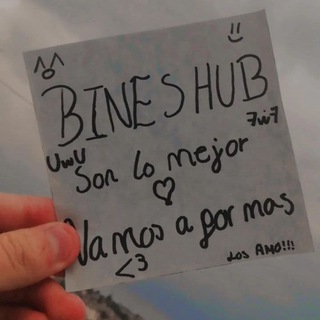 ^o^ =)
BINES HUB
UwU 7w7
Son lo mejor
♡
Vamos a por mas
<3 Los AMO!!!